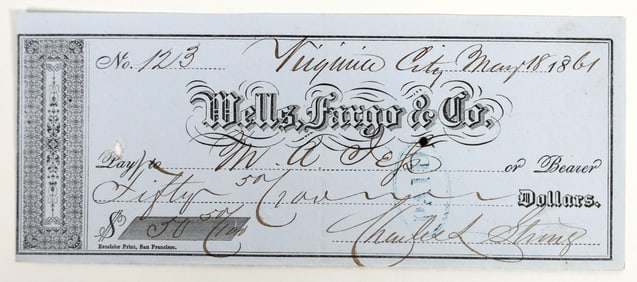 No. 123 Virginia City May 18 1861
Wells, Fargo & Co.
Pay to M. A. or Bearer
Fifty 50/100 Dollars.
$ 50 50/100 Charles L. Strong
Excelsior Print, San Francisco.